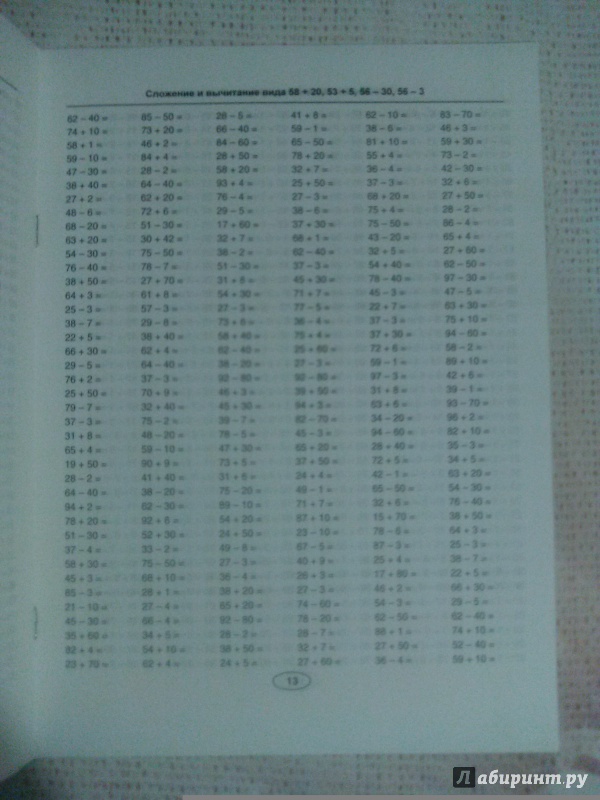 Сложение и вычитание вида 58 + 20, 53 + 5, 56 – 30, 56 – 3
62 – 40 = 85 – 50 = 28 – 5 = 41 + 8 = 62 – 10 = 83 – 70 =
74 + 10 = 73 + 20 = 66 – 40 = 59 – 1 = 38 – 6 = 46 + 3 =
58 + 1 = 46 + 2 = 84 – 60 = 65 – 50 = 81 + 10 = 59 + 30 =
59 – 10 = 84 + 4 = 28 + 50 = 78 + 20 = 55 + 4 = 73 – 2 =
47 – 30 = 28 – 2 = 58 + 20 = 32 + 7 = 36 – 4 = 42 – 30 =
38 + 40 = 64 – 40 = 93 + 4 = 25 + 50 = 37 – 3 = 32 + 6 =
27 + 2 = 62 + 20 = 76 – 4 = 27 – 3 = 68 + 20 = 27 + 50 =
48 – 6 = 72 + 6 = 29 – 5 = 38 – 6 = 75 + 4 = 28 – 2 =
68 – 20 = 51 – 30 = 17 + 60 = 37 + 30 = 75 – 50 = 66 – 4 =
63 + 20 = 30 + 42 = 32 + 7 = 68 + 1 = 43 – 20 = 65 + 4 =
54 – 30 = 75 – 50 = 38 – 2 = 62 – 40 = 32 + 5 = 27 + 60 =
76 – 40 = 78 – 7 = 51 – 30 = 37 – 3 = 54 + 40 = 62 – 50 =
38 + 50 = 27 + 70 = 31 + 8 = 45 + 30 = 78 – 40 = 97 – 30 =
64 + 3 = 61 + 8 = 54 + 30 = 71 + 7 = 45 – 3 = 47 – 5 =
25 – 3 = 57 – 3 = 27 – 3 = 77 – 5 = 22 + 7 = 63 + 30 =
38 – 7 = 29 – 8 = 73 + 6 = 36 – 4 = 37 – 3 = 75 + 10 =
22 + 5 = 38 + 40 = 58 + 40 = 75 + 4 = 37 + 30 = 94 – 60 =
66 + 30 = 62 + 4 = 62 – 40 = 25 + 60 = 72 + 6 = 58 – 2 =
29 – 5 = 64 – 40 = 38 – 20 = 27 – 3 = 59 – 1 = 89 + 10 =
76 + 2 = 37 – 3 = 92 – 80 = 92 – 80 = 97 – 3 = 42 + 6 =
25 + 50 = 70 + 9 = 46 + 3 = 39 + 50 = 31 + 8 = 39 – 1 =
79 – 7 = 32 + 40 = 45 + 30 = 94 + 3 = 63 + 6 = 93 – 70 =
37 – 3 = 75 – 2 = 39 – 7 = 82 – 70 = 34 – 20 = 96 + 2 =
31 + 8 = 48 – 20 = 78 – 5 = 45 – 3 = 94 – 60 = 82 + 10 =
65 + 4 = 59 – 10 = 47 + 30 = 65 + 20 = 28 + 40 = 35 – 3 =
19 + 50 = 90 + 9 = 73 + 5 = 37 + 50 = 72 + 5 = 34 + 5 =
28 – 2 = 41 + 40 = 31 + 6 = 24 + 4 = 42 – 1 = 63 + 20 =
64 – 40 = 38 – 20 = 75 – 20 = 49 – 1 = 65 – 50 = 54 – 30 =
94 + 2 = 62 – 30 = 89 – 10 = 71 + 7 = 32 + 6 = 76 – 40 =
78 + 20 = 92 + 6 = 54 + 20 = 87 + 10 = 15 + 70 = 38 + 50 =
51 – 30 = 52 + 30 = 24 + 50 = 23 – 10 = 78 – 6 = 64 + 3 =
37 – 4 = 33 – 2 = 49 – 8 = 67 – 5 = 87 – 3 = 25 – 3 =
58 + 30 = 75 – 50 = 27 – 3 = 40 + 9 = 25 + 4 = 38 – 7 =
45 + 3 = 68 + 10 = 36 – 4 = 26 + 3 = 17 + 80 = 22 + 5 =
85 – 3 = 28 + 1 = 38 + 20 = 27 – 3 = 46 + 2 = 66 + 30 =
21 – 10 = 27 – 4 = 65 + 20 = 74 – 60 = 54 – 3 = 29 – 5 =
45 – 30 = 66 – 4 = 92 – 80 = 78 – 20 = 62 – 50 = 62 – 40 =
35 + 60 = 34 + 5 = 28 – 2 = 28 – 7 = 88 + 1 = 74 + 10 =
82 + 4 = 54 + 10 = 38 + 50 = 32 + 7 = 27 + 50 = 52 – 40 =
23 + 70 = 62 + 4 = 24 + 5 = 27 + 60 = 36 – 4 = 59 + 10 =
13
Лабиринт.ру